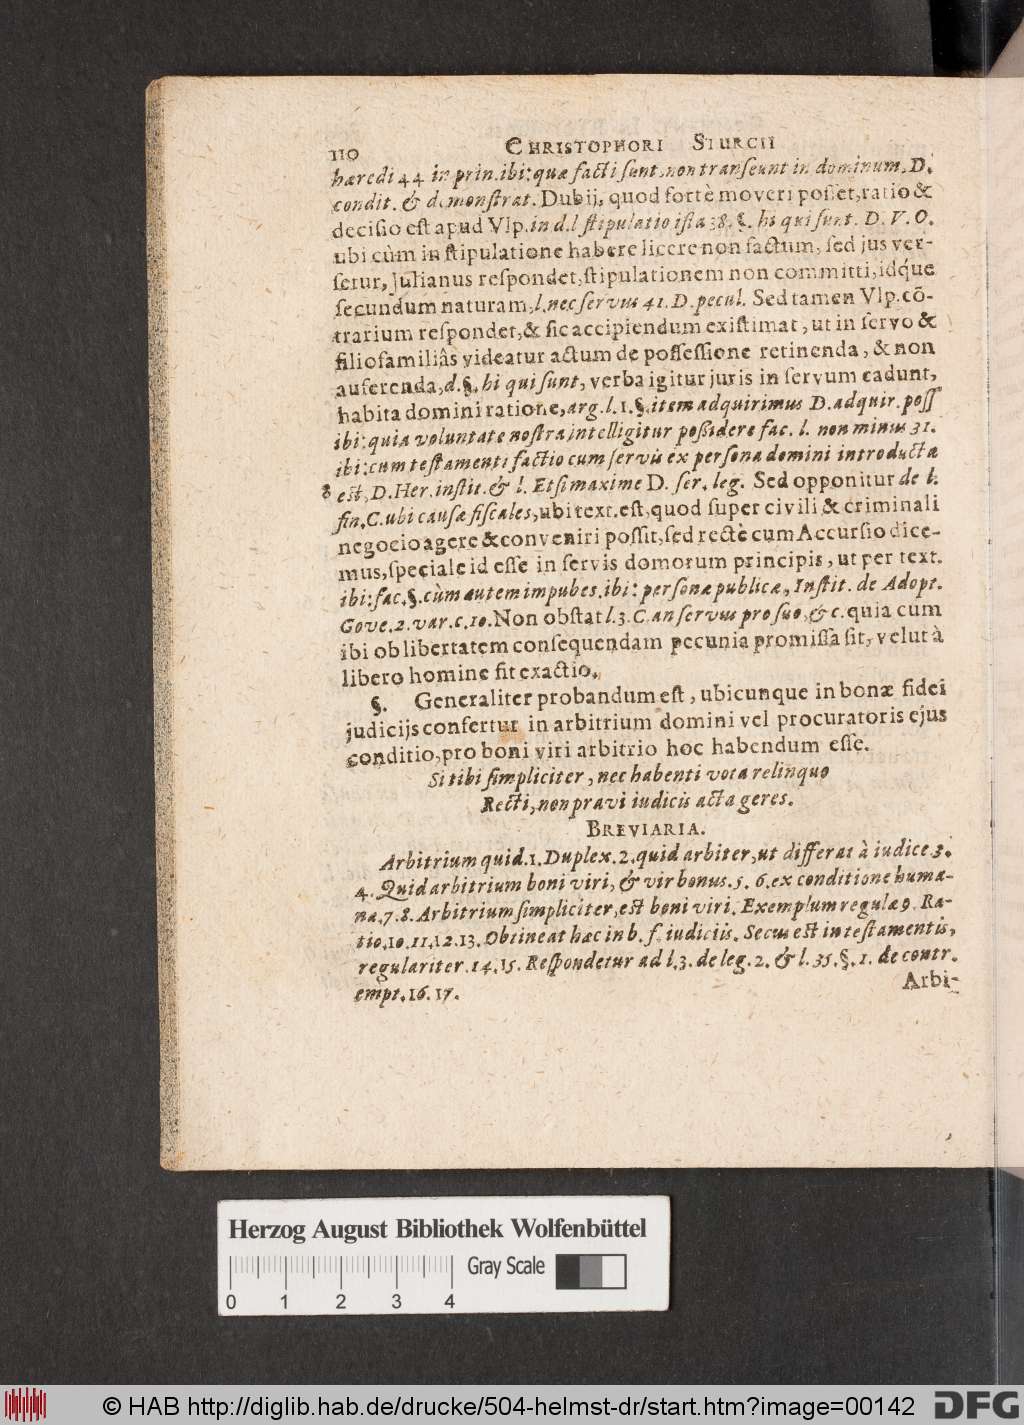 110 CHRISTOPHORI STURCII
hæredi 44 in prin. ibi: quæ facti sunt, non transeunt in dominum, D.
condit. & demonstrat. Dubij, quod fortè moveri posset, ratio &
decisio est apud Vlp. in d. l stipulatio ista 38. §. hi qui sunt. D. V. O.
ubi cùm in stipulatione habere licere non factum, sed jus ver-
setur, Julianus respondet, stipulationem non committi, idq́ue
secundum naturam, l. nec servus 41. D. pecul. Sed tamen Vlp. cō-
trarium respondet, & sic accipiendum existimat, ut in servo &
filiofamiliâs videatur actum de possessione retinenda, & non
auferenda, d. §. hi qui sunt, verba igitur juris in servum cadunt,
habita domini ratione, arg. l. 1. §. item adquirimus D. adquir. poss
ibi: quia voluntate nostra intelligitur possidere fac. l. non minus 31.
ibi: cum testamenti factio cum servis ex persona domini introducta
8 est, D. Her. instit. & l. Etsi maxime D. ser. leg. Sed opponitur de l.
fin. C. ubi causæ fiscales, ubi text. est, quod super civili & criminali
negocio agere & conveniri possit, sed rectè cum Accursio dice-
mus, speciale id esse in servis domorum principis, ut per text.
ibi: fac. §. cùm autem impubes. ibi: personæ publicæ, Instit. de Adopt.
Gove. 2. var. c. 10. Non obstat l. 3. C. an servus pro suo, & c. quia cum
ibi ob libertatem consequendam pecunia promissa sit, velut à
libero homine fit exactio.
§. Generaliter probandum est, ubicunque in bonæ fidei
judicijs confertur in arbitrium domini vel procuratoris ejus
conditio, pro boni viri arbitrio hoc habendum esse.
Si tibi simpliciter, nec habenti vota relinquo
Recti, non pravi iudicis acta geres.
BREVIARIA.
Arbitrium quid. 1. Duplex. 2. quid arbiter, ut differat à iudice 3.
4. Quid arbitrium boni viri, & vir bonus. 5. 6. ex conditione huma-
na. 7. 8. Arbitrium simpliciter, est boni viri. Exemplum regulæ 9. Ra-
tio. 10. 11. 12. 13. Obtineat hæc in b. f. iudiciis. Secus est in testamentis,
regulariter. 14. 15. Respondetur ad l. 3. de leg. 2. & l. 35. §. 1. de contr.
empt. 16. 17.
Arbi-
Herzog August Bibliothek Wolfenbüttel
Gray Scale
0 1 2 3 4
© HAB http://diglib.hab.de/drucke/504-helmst-dr/start.htm?image=00142
DFG